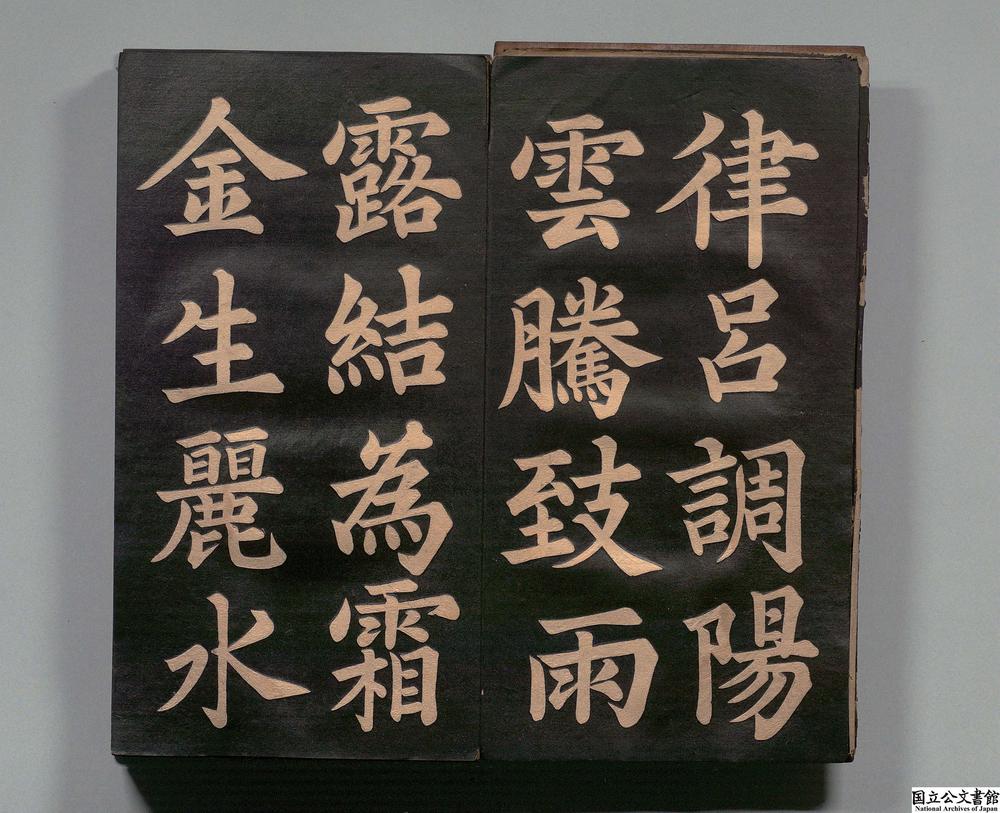 律呂調陽
雲騰致雨
露結為霜
金生麗水
国立公文書館
National Archives of Japan